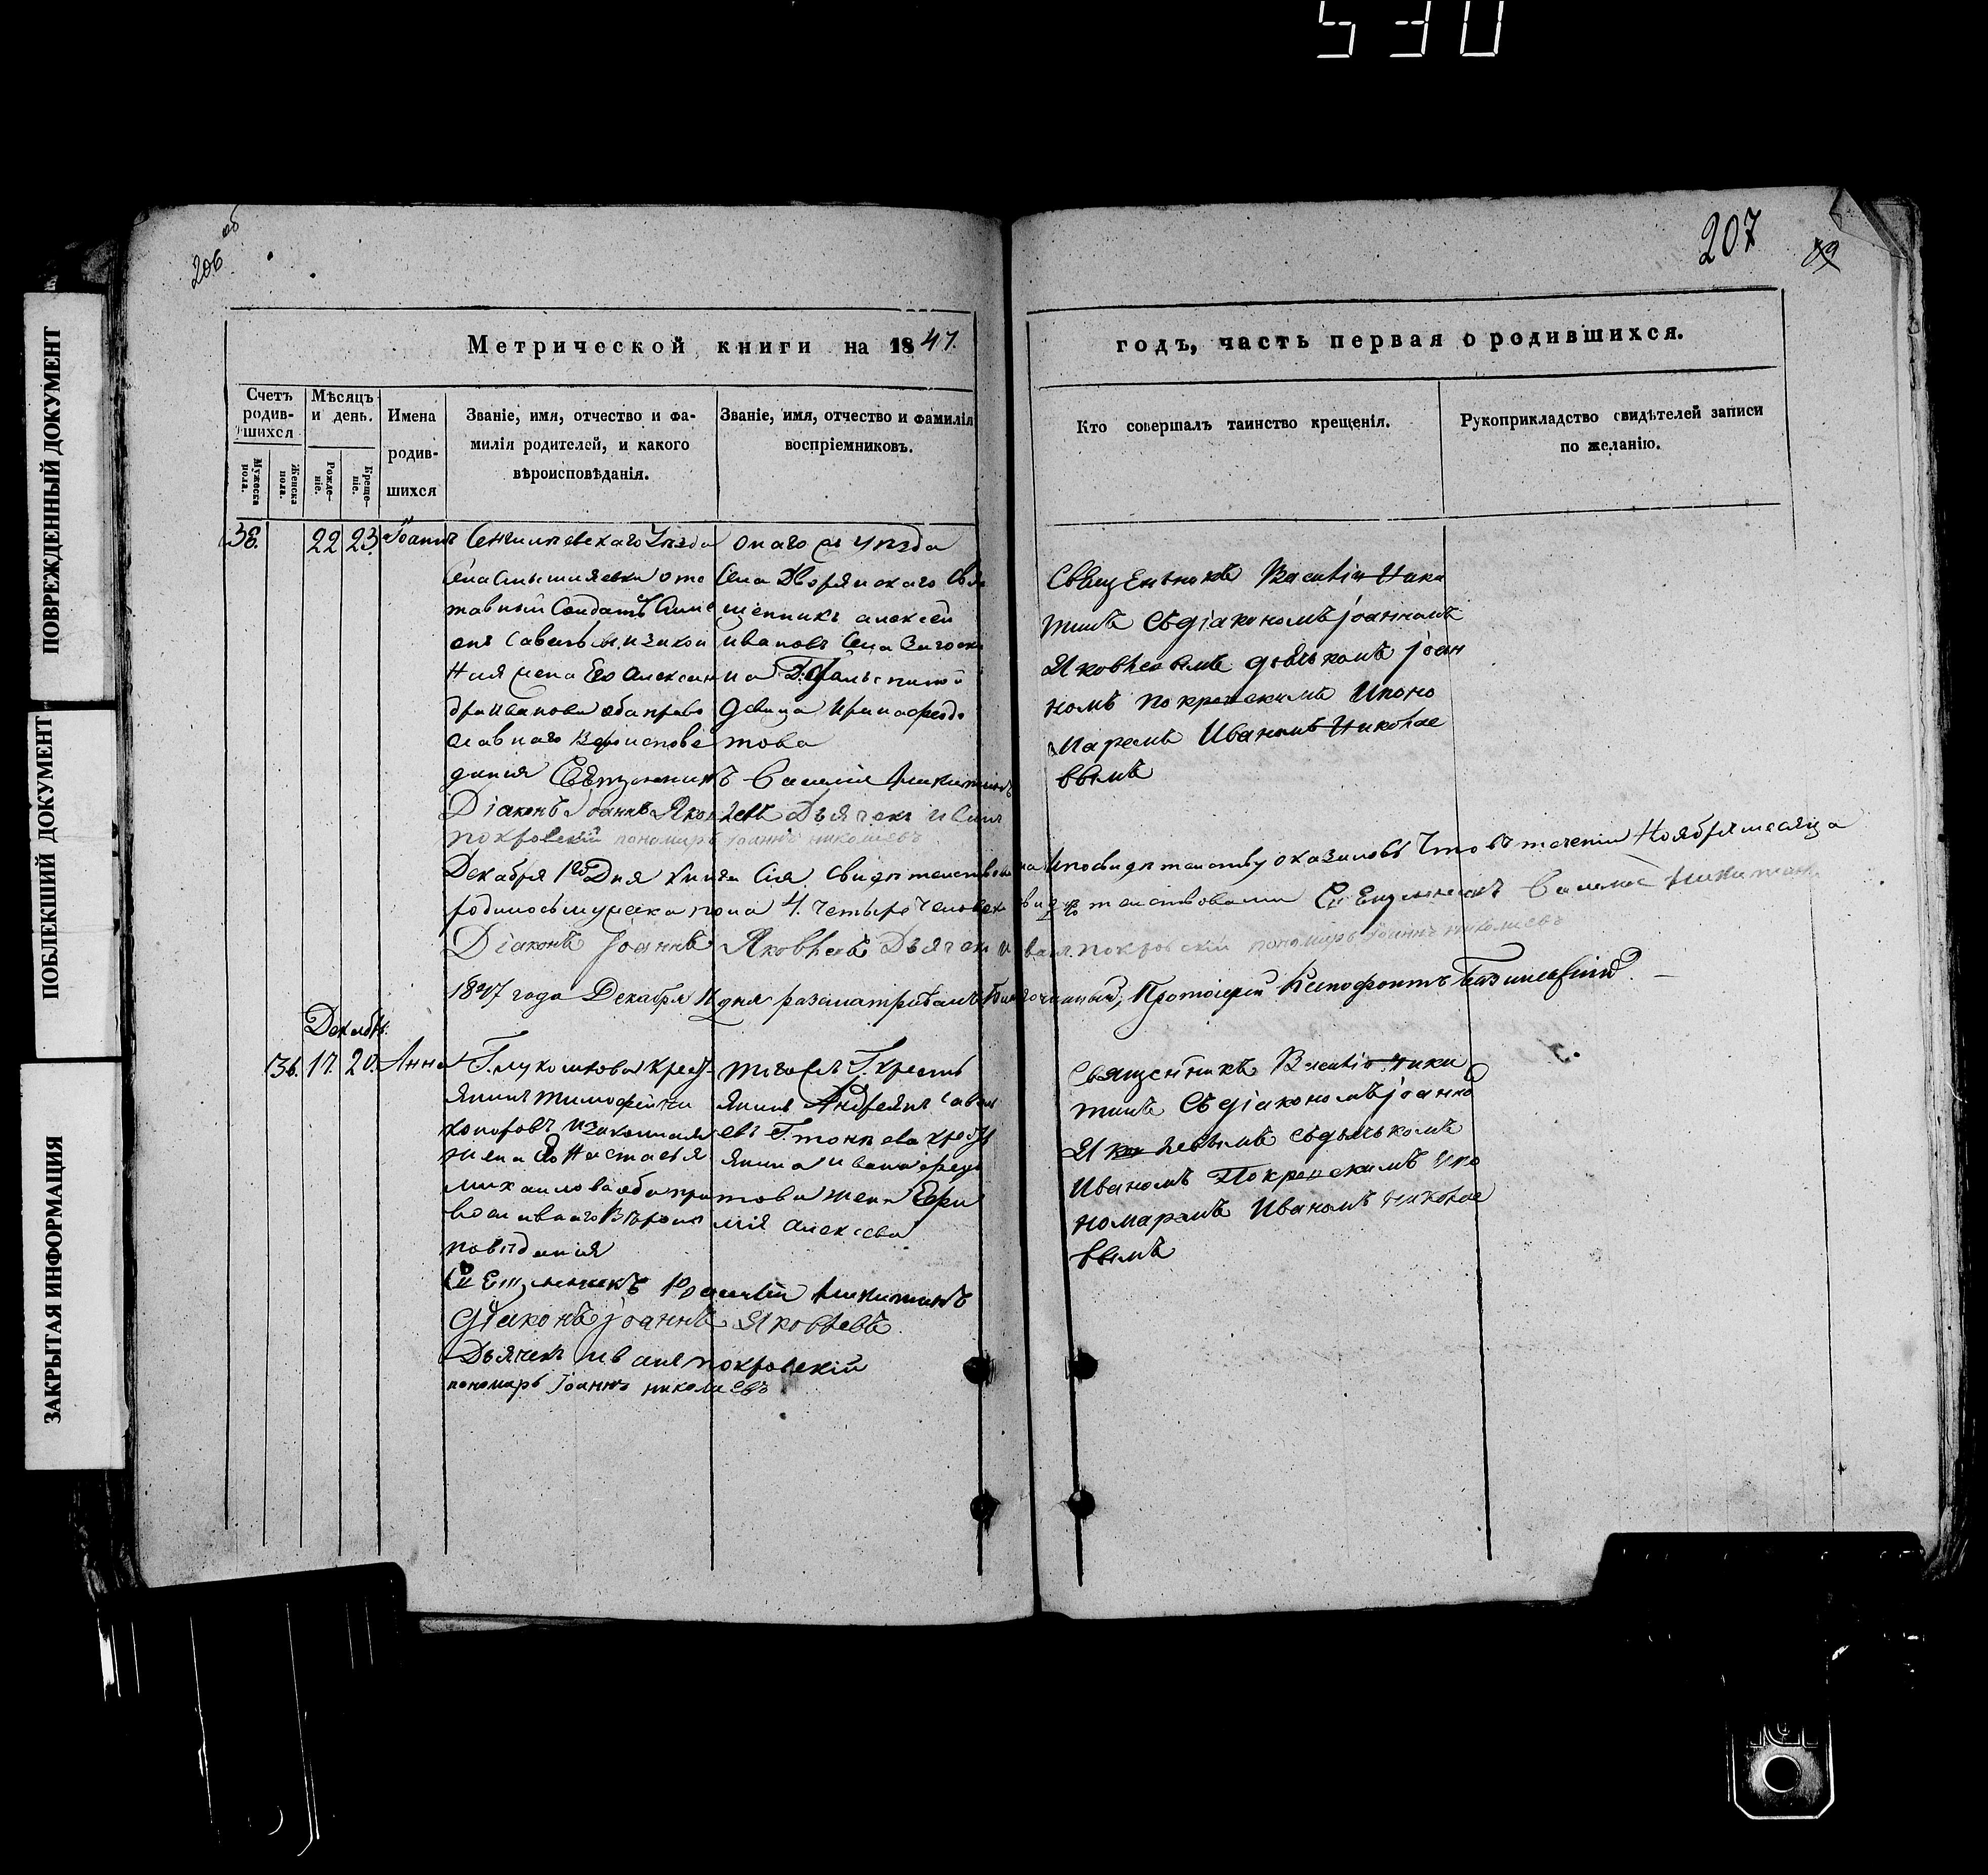 530
ПОВРЕЖДЕННЫЙ ДОКУМЕНТ
ПОБЛЕКШИЙ ДОКУМЕНТ
ЗАКРЫТАЯ ИНФОРМАЦИЯ
206 об
207
Метрической книги на 1847.
годъ, часть первая о родившихся.
Счетъ родив-шихся
Мужеска пола.
Женска пола.
Мѣсяцъ и день.
Рожде-ніе.
Креще-ніе.
Имена родив-шихся
Званіе, имя, отчество и фа-
милія родителей, и какого
вѣроисповѣданія.
Званіе, имя, отчество и фамилія
воспріемниковъ.
Кто совершалъ таинство крещенія.
Рукоприкладство свидѣтелей записи
по желанію.
38. 22 23. Іоаннъ
Сенгилеевскаго Уезда
отс
тавный Солдатъ Симе
онъ Савельевъ и закон
ная жена Его Алексан
дра Иванова оба право
славнаго Вероисповѣ
данія
онаго уезда
Села Дворянскаго Свя
щенникъ алексей
ивановъ Села
девица Ирина федо
това
Священникъ Василій Ники
тинъ Съ діакономъ іоанномъ
Яковлевымъ дьячкомъ іоан
номъ покровскимъ Ипоно
маремъ Иваномъ Николае
ввымъ
Священникъ Василій Никитинъ
Діаконъ Іоаннъ Яковлевъ Дьячекъ иванъ
покровскій пономарь Іоаннъ николаевъ
Декабря 1го Дня книга Сія свидетельствована и по свидетельству оказалось Что въ теченіи Ноября месяца
родилось мужеска пола 4. четыре человека свидетельствовали Священникъ Василій Никитинъ
Діаконъ Іоаннъ Яковлевъ Дьячекъ иванъ покровскій пономарь Іоаннъ николаевъ
1847 года Декабря 11 дня разсматривалъ Благочинный, Протоіерей Ксенофонтъ
Декабрь.
36. 17. 20. Анна
Г. крес
янинъ тимофей ни
коноровъ и законная
жена Его Настасья
михайлова оба пра
вославнаго Вероис
поведанія
тогоже Г. крестья
янинъ Андреянъ савель
евъ
янина ивана федо
това жена Ефи
мія алексеева
Священникъ Василій Ники
тинъ Съ діакономъ іоанно
Яковлевымъ съ дьячкомъ
Иваномъ Покровскимъ Ипо
номаремъ Иваномъ николае
ввымъ
Священникъ Василій Никитинъ
Діаконъ іоаннъ Яковлевъ
Дьячекъ иванъ покровскій
пономарь Іоаннъ николаевъ